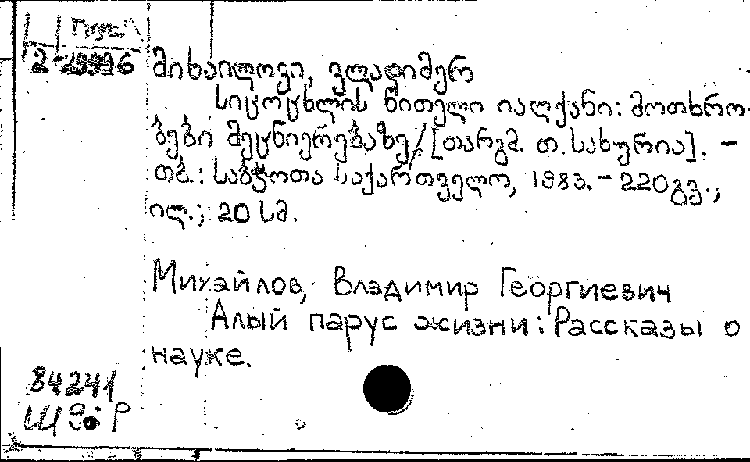 მიხაილოვი, ვლადიმერ
სიცოცხლის წითელი იალქანი: მოთხრო-
ბები მეცნიერებაზე/[თარგმ. თ. სახურია]. –
თბ.: საბჭოთა საქართველო, 1983. – 220გვ.,
ილ.; 20 სმ.
Михайлов, Владимир Георгиевич
Алый парус жизни: Рассказы о
науке.
84241